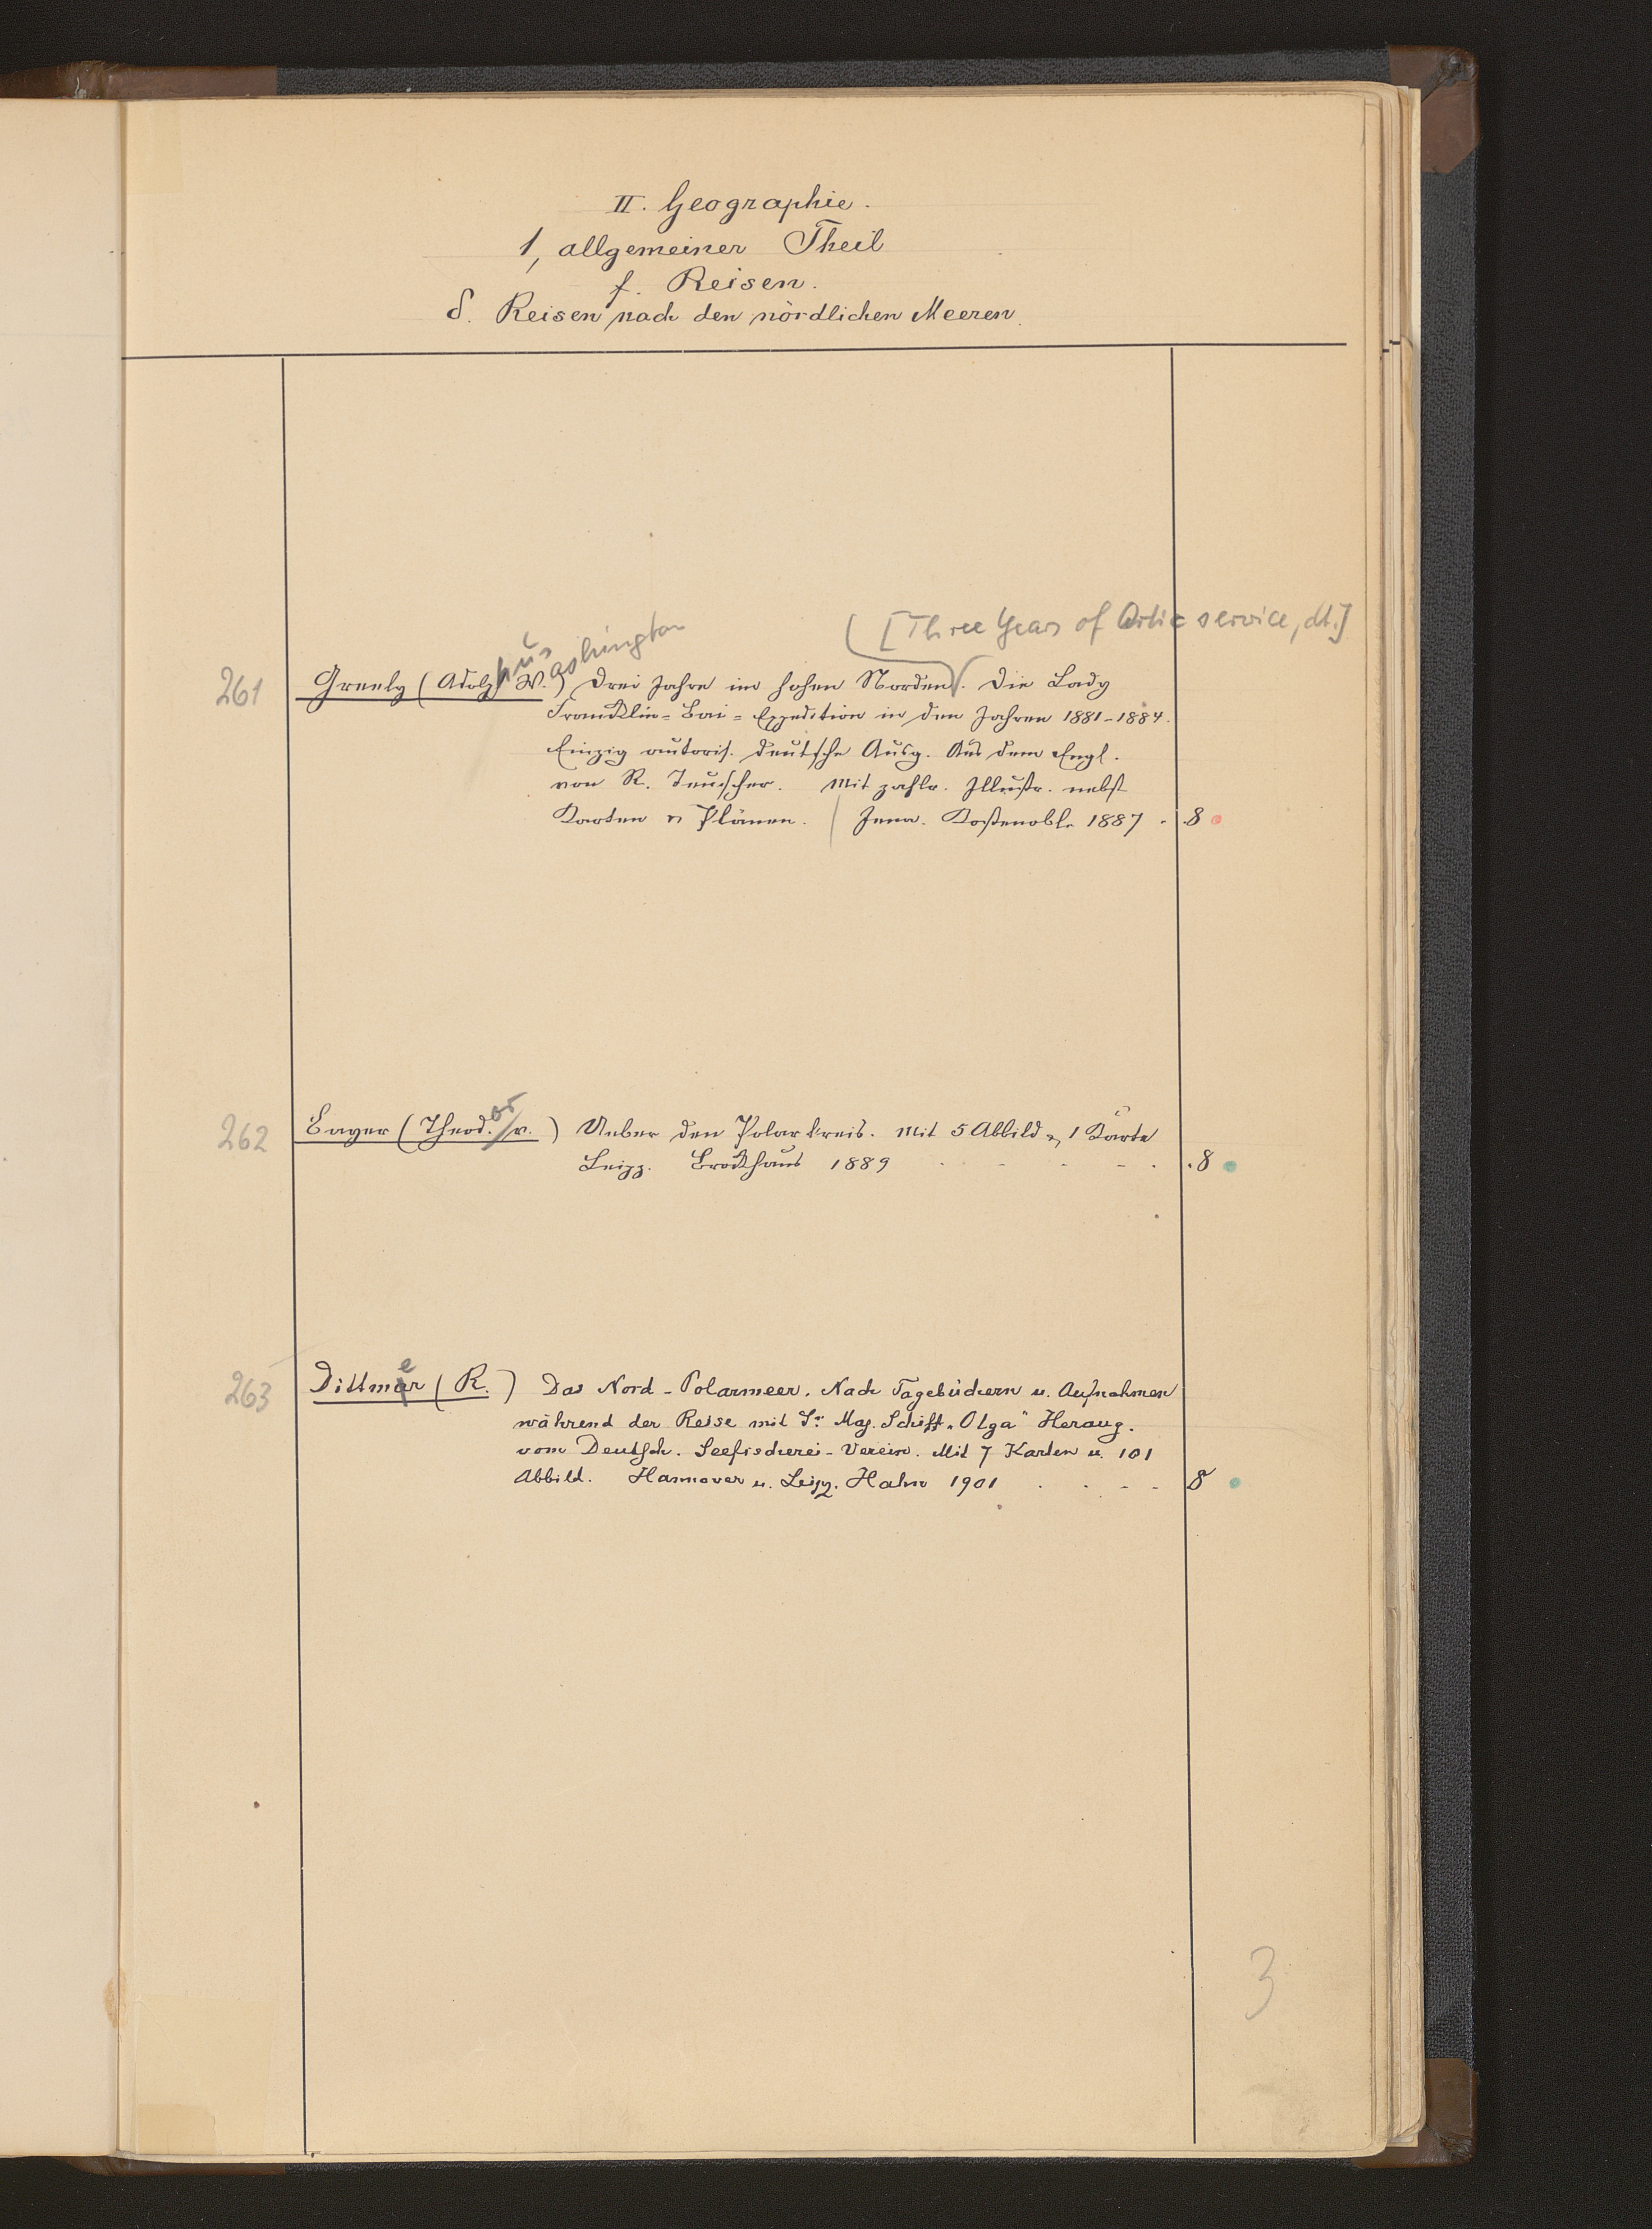 II. Geographie.
1, allgemeiner Theil
f. Reisen.
δ. Reisen nach den nördlichen Meeren.
[Three Years of Artic service, dt.]
hus ashington
261 Greely (Adolp W.) Drei Jahre im hohen Norden. Die Lady
Franklin-Bai-Expedition in den Jahren 1881-1884.
Einzig autoris. deutsche Ausg. Aus dem Engl.
von R. Teuscher. Mit zahlr. Illustr. nebst
Karten u Plänen. Jena. Kostenoble 1887 . 8
or
262 Bayer (Theod. v.) Ueber den Polarkreis. Mit 5 Abbild u, 1 Karte
Leipz. Brockhaus 1889 . - - - - . . 8
e
263 Dittmar (R.) Das Nord-Polarmeer. Nach Tagebüchern u. Aufnahmen
während der Reise mit Sr. Maj. Schiff „Olga" Herausg.
vom Deutsch. Seefischerei-Verein. Mit 7 Karten u. 101
Abbild. Hannover u. Leipz. Hahn 1901 . . - - 8
3